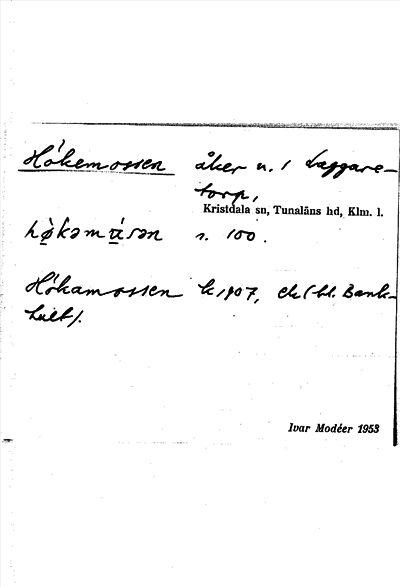 Hökemossen åker u. / Laggare-
torp,
Kristdala sn, Tunaläns hd, Klm. l.
hø̀kəmɷ́sən s. 100.
Hökamossen k 1907, ek (bl. Bank-
hult).
Ivar Modéer 1953